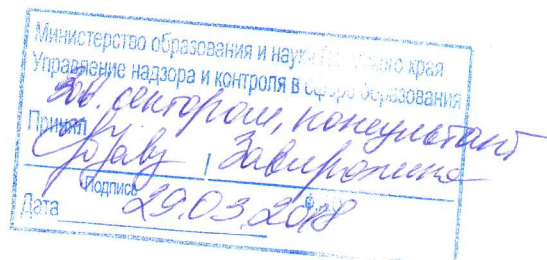 Министерство образования и науки края
Управление надзора и контроля в сфере образования
Зав. сектором, консультант
Принял
Подпись
Дата 29.03.2018